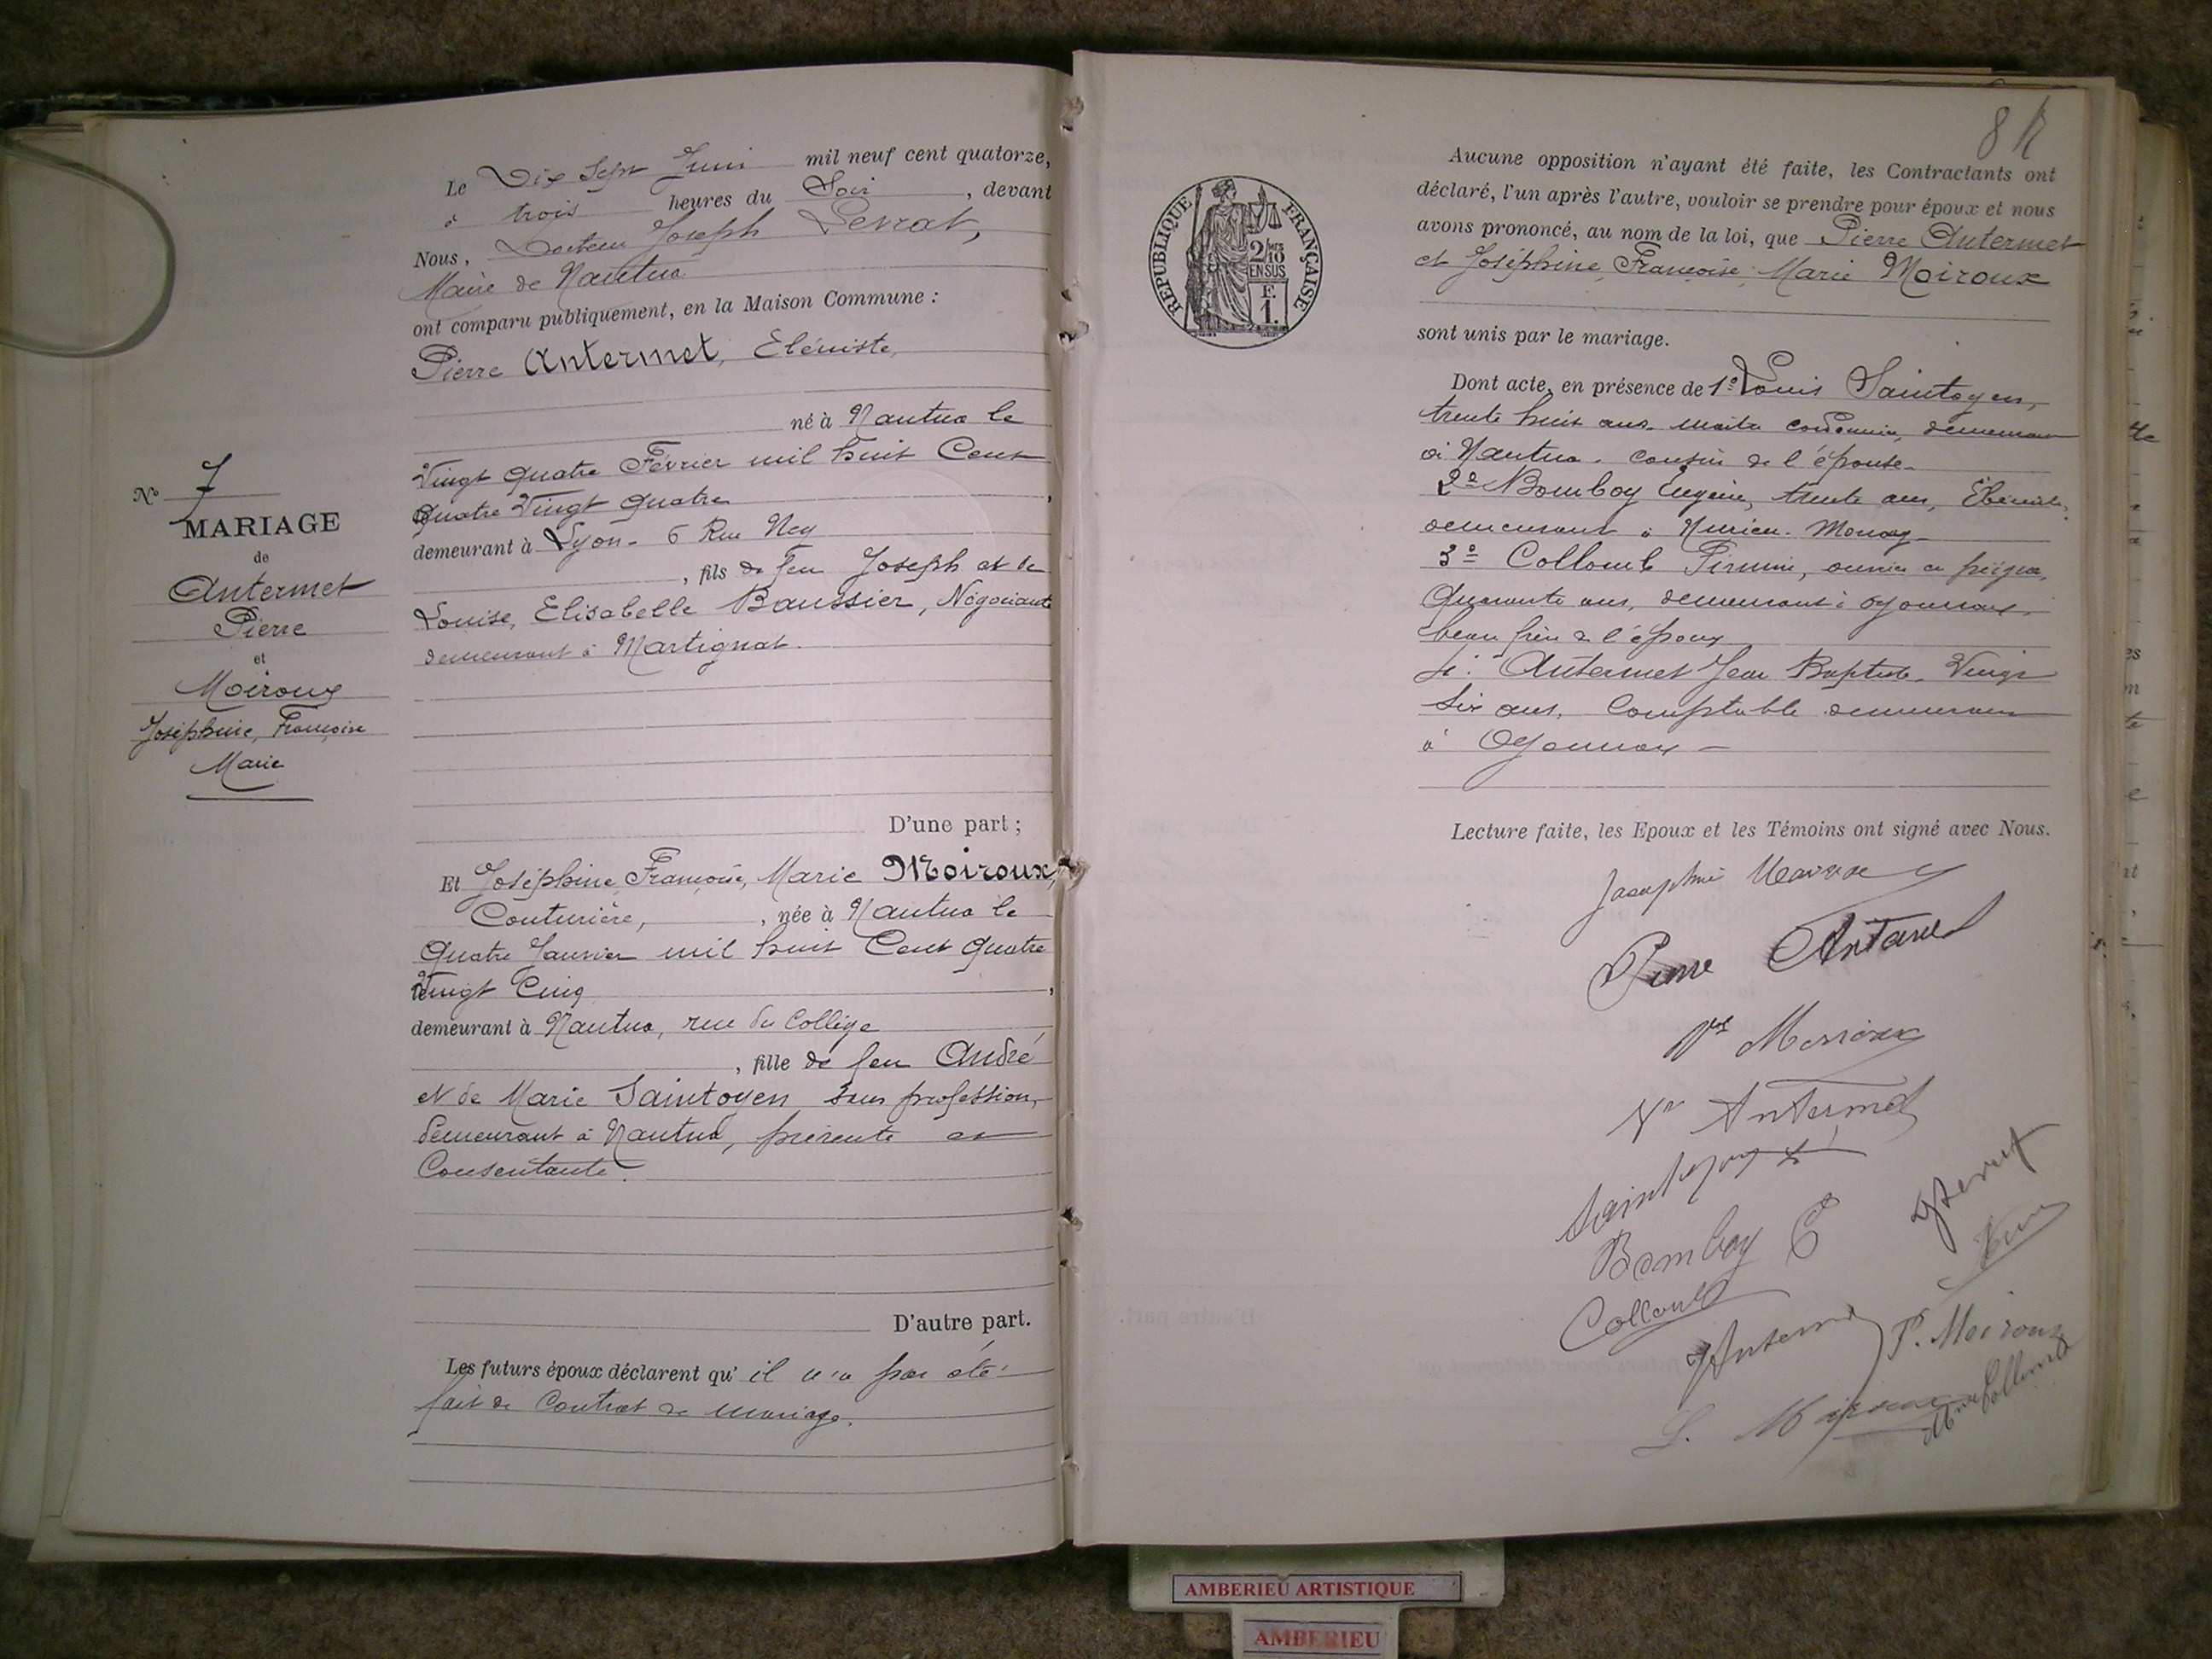 N° 7
MARIAGE
de
Antermet
Pierre
et
Moiroux
Joséphine, Françoise
Marie
Le Dix Sept Juin mil neuf cent quatorze,
à trois heures du Soir, devant
Nous, Docteur Joseph Levrat,
Maire de Nantua
ont comparu publiquement, en la Maison Commune :
Pierre Antermet, Ebéniste,
né à Nantua le
Vingt quatre Février mil huit Cent
Quatre Vingt quatre,
demeurant à Lyon - 6 Rue Ney
, fils de feu Joseph et de
Louise, Elisabelle Baussier, Négociante
demeurant à Martignat.
D'une part ;
Et Joséphine, Françoise, Marie Moiroux,
Couturière, , née à Nantua le
Quatre Janvier mil huit Cent quatre
Vingt Cinq,
demeurant à Nantua, rue du Collège
, fille de feu André
et de Marie Saintoyen sans profession,
demeurant à Nantua, présente et
Consentante.
D'autre part.
Les futurs époux déclarent qu'il n'a pas été
fait de Contrat de mariage.
REPUBLIQUE FRANÇAISE
2/10
EN SUS
F.
1.
Aucune opposition n'ayant été faite, les Contractants ont
déclaré, l'un après l'autre, vouloir se prendre pour époux et nous
avons prononcé, au nom de la loi, que Pierre Antermet
et Joséphine, Françoise, Marie Moiroux
sont unis par le mariage.
Dont acte, en présence de 1° Louis Saintoyen,
trente huit ans, maître cordonnier, demeurant
à Nantua. cousin de l'épouse.
2° Bomboy Eugène, trente ans, Ebéniste,
demeurant à Nurieu-Mornay
3° Collomb Firmin, ouvrier en peignes,
Quarante ans, demeurant à Oyonnax,
beau frère de l'époux
4° Antermet Jean Baptiste, Vingt
Six ans, Comptable demeurant
à Oyonnax -
Lecture faite, les Epoux et les Témoins ont signé avec Nous.
Joséphine Moiroux
Pierre Antermet
Vve Moiroux
Vve Antermet
Saintoyen
Bomboy E
Collomb
J Antermet
P. Moiroux
L. Moiroux
Collomb
AMBERIEU ARTISTIQUE
AMBERIEU